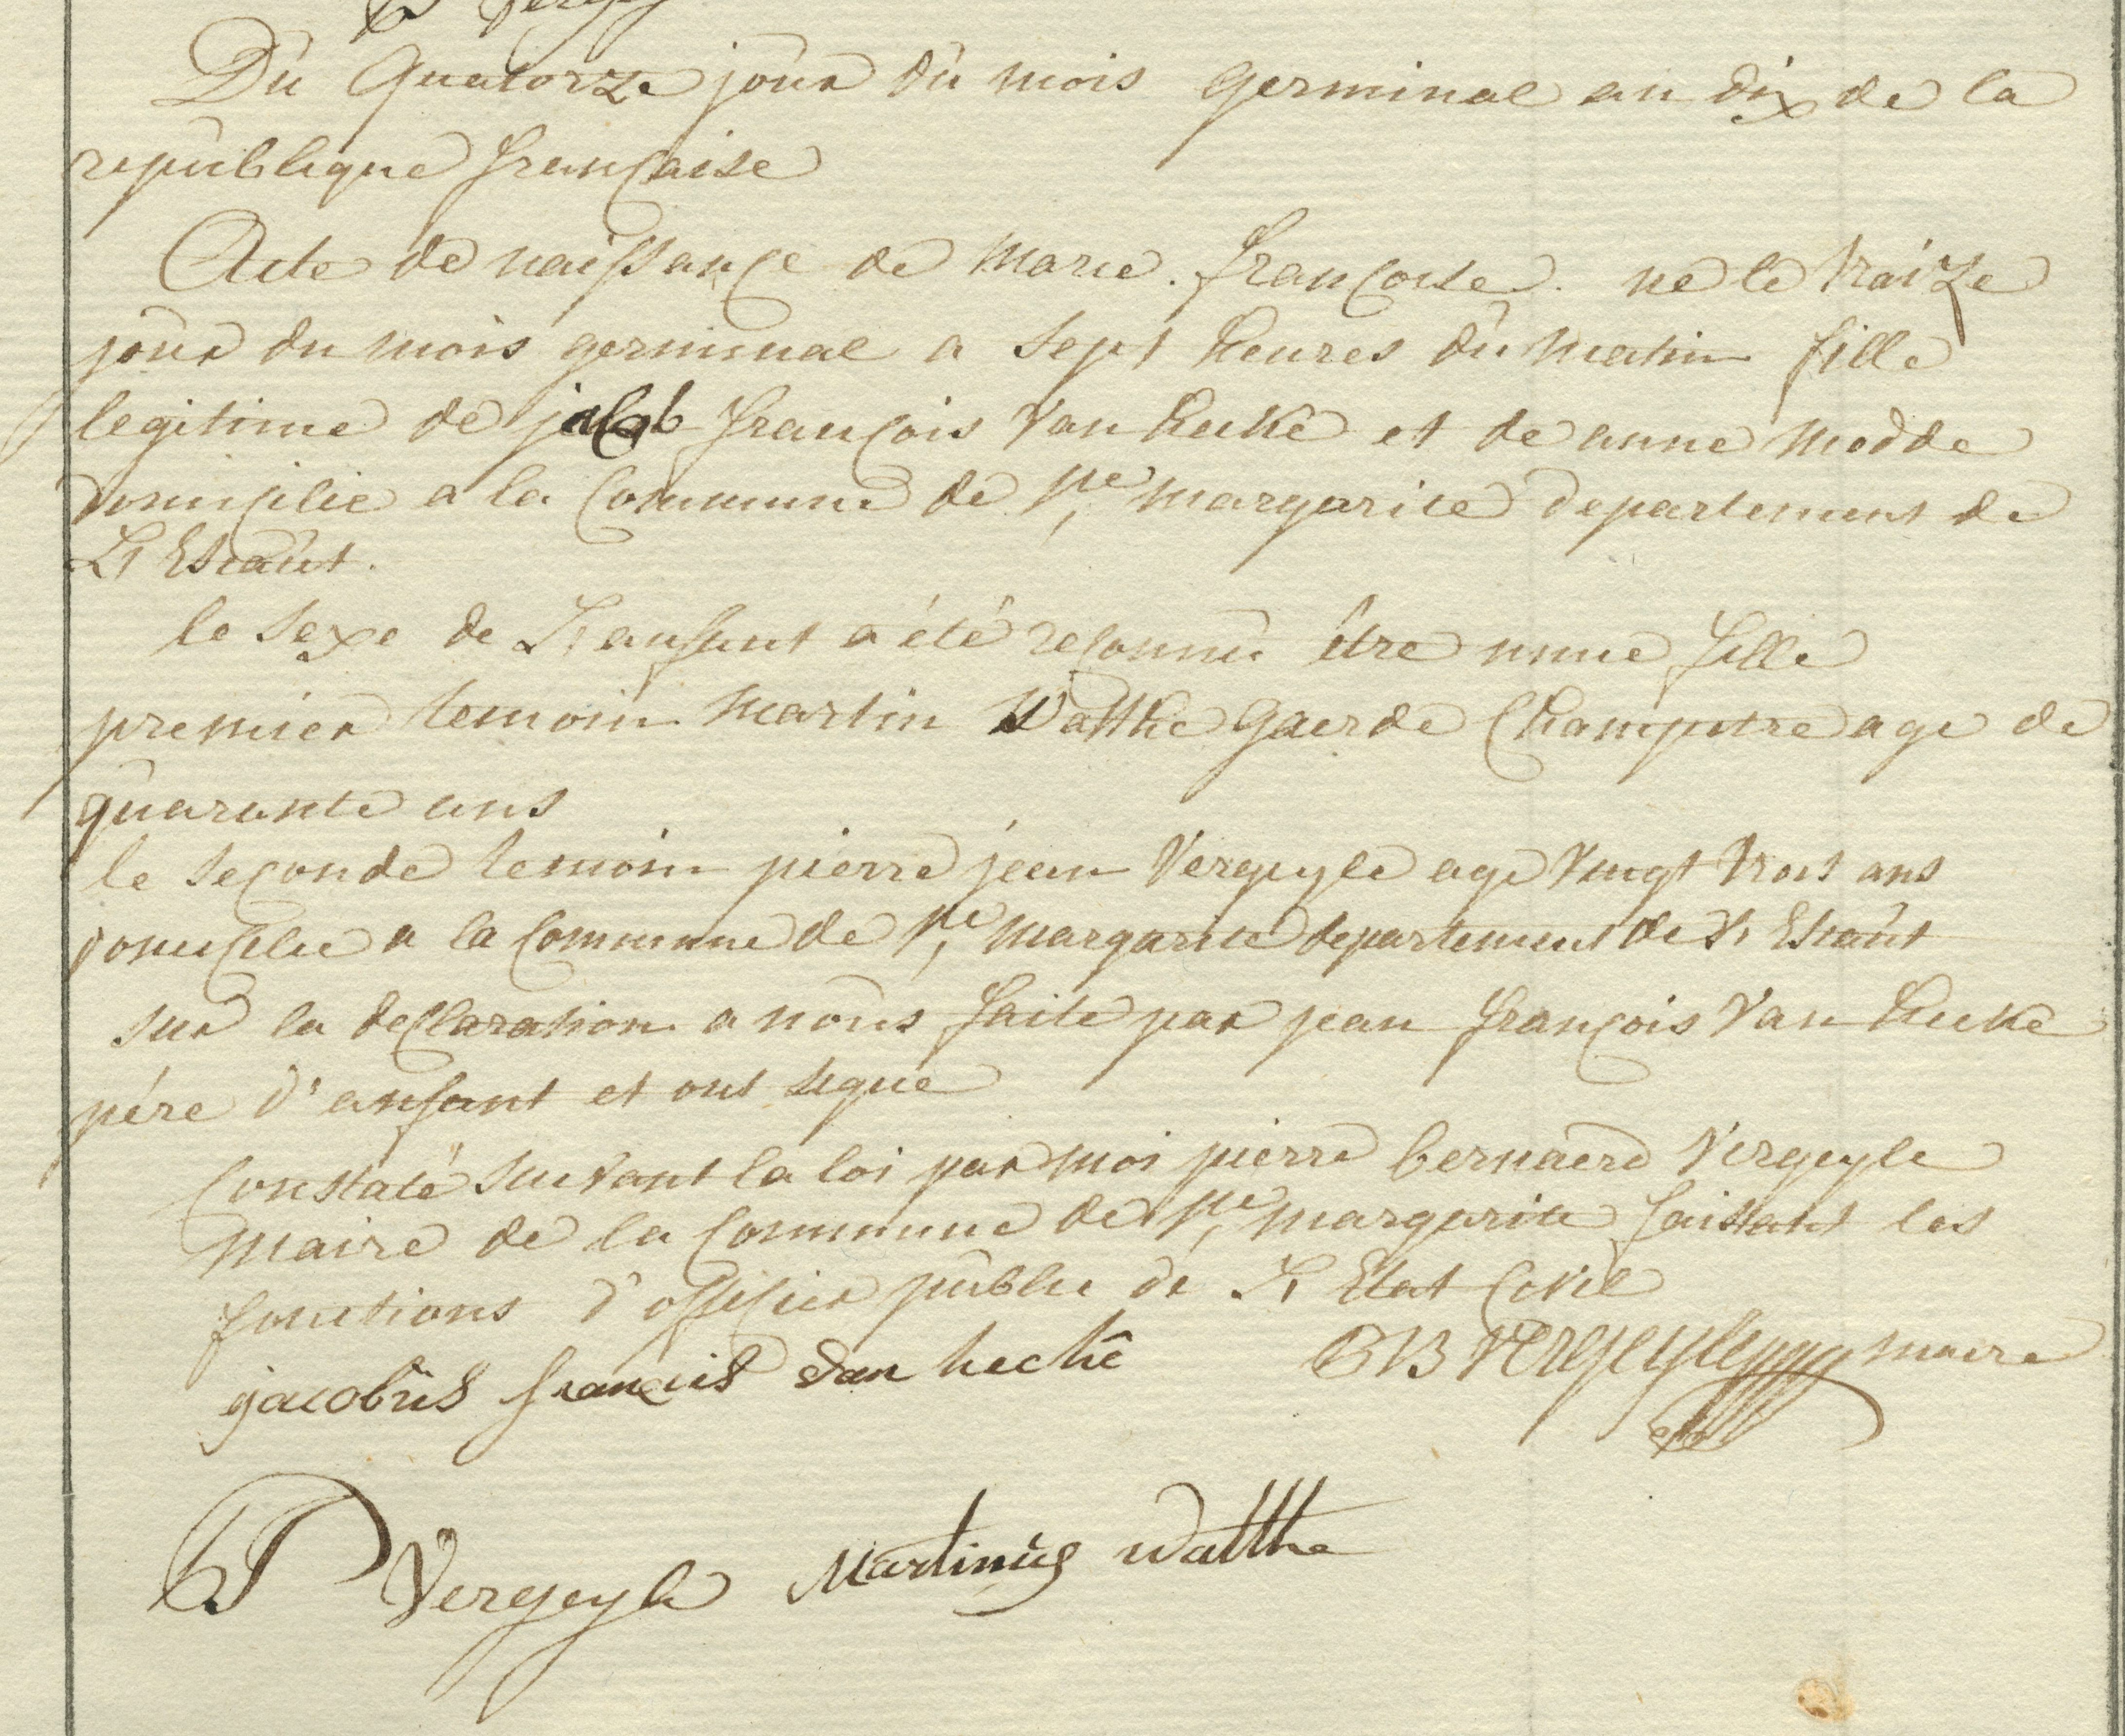 Du Quatorze jour du mois germinal an dix de la
republique française
Acte de naissance de Marie francoise ne le traize
jour du mois germinal a sept heures du matin fille
legitime de jacob françois Van hecke et de anne modde
domicilie a la Commune de Ste margarite departement de
L'Escaut.
le sexe de L'anfant a été reconnu être unne fille
premier temoin martin Watthe gaerde Champetre age de
quarante ans
le seconde temoin pierre jean Vergeyle age Vingt trois ans
domicilie a la Commune de Ste margarite departement de L'Escaut
sur la declaration a nous faite par jean françois Van hecke
père d'anfant et ont signe
Constaté suivant la loi par moi pierre bernaerd Vergeyle
maire de la Commune de Ste margarite faissant les
fonctions d'officier public de L'Etat Civil
jacobus francis van heckê
PB Vergeyle maire
PJ Vergeyle Martinus Watthe